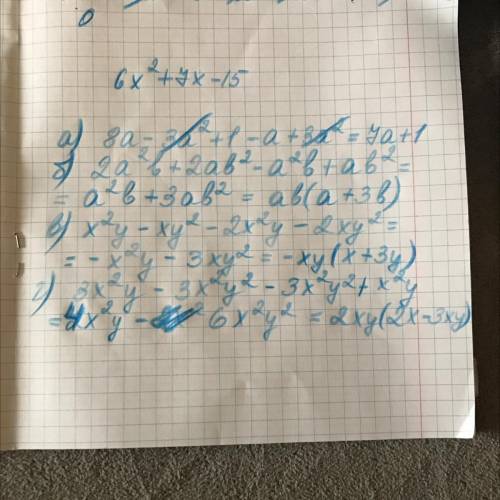 0
6x²+7x-15
а) 8a - 3a² + 1 - a + 3a² = 7a+1
б) 2a²b + 2ab² - a²b + ab² =
= a²b + 3ab² = ab(a+3b)
в) x²y - xy² - 2x²y - 2xy² =
= -x²y - 3xy² = -xy(x+3y)
г) 3x²y - 3x²y² - 3x²y² + x²y
= 4x²y - 6x²y² = 2xy(2x-3xy)